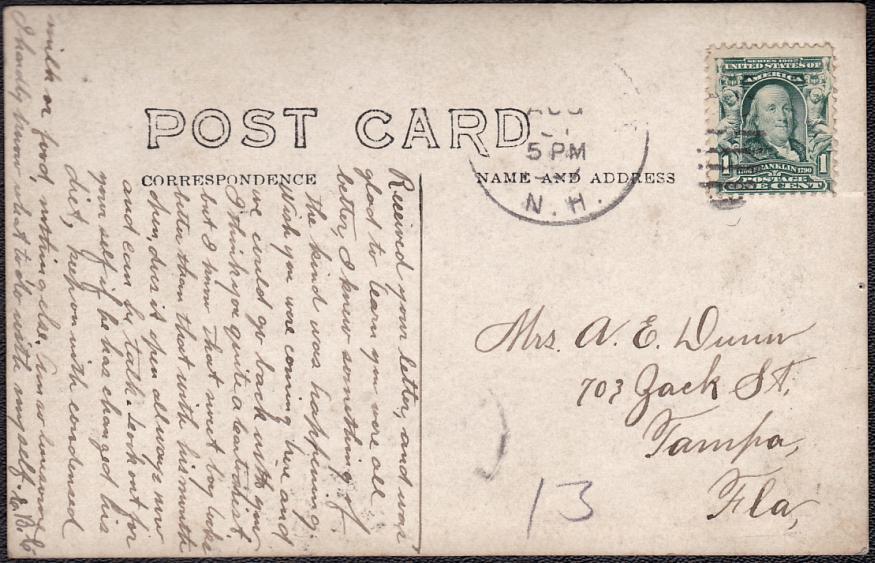 POST CARD
CORRESPONDENCE
NAME AND ADDRESS
AUG
5 PM
N. H.
SERIES 1902
UNITED STATES OF
AMERICA
1 FRANKLIN 1
1706 1790
POSTAGE
ONE CENT
Received your letter, and was
glad to learn you were all
better, I knew something of
the kind was happening.
Wish you were coming here and
we could go back with you
I think you quite a
but I know that sweet boy looks
better than that with his mouth
open, does it open all ways now
and can he talk. Look out for
your self if he has changed his
diet, keep on with condensed
milk or food, nothing else. Am so lonesome
I hardly know what to do with myself.
Mrs. A. E. Dunn
703 Zack St,
Tampa,
Fla,
13